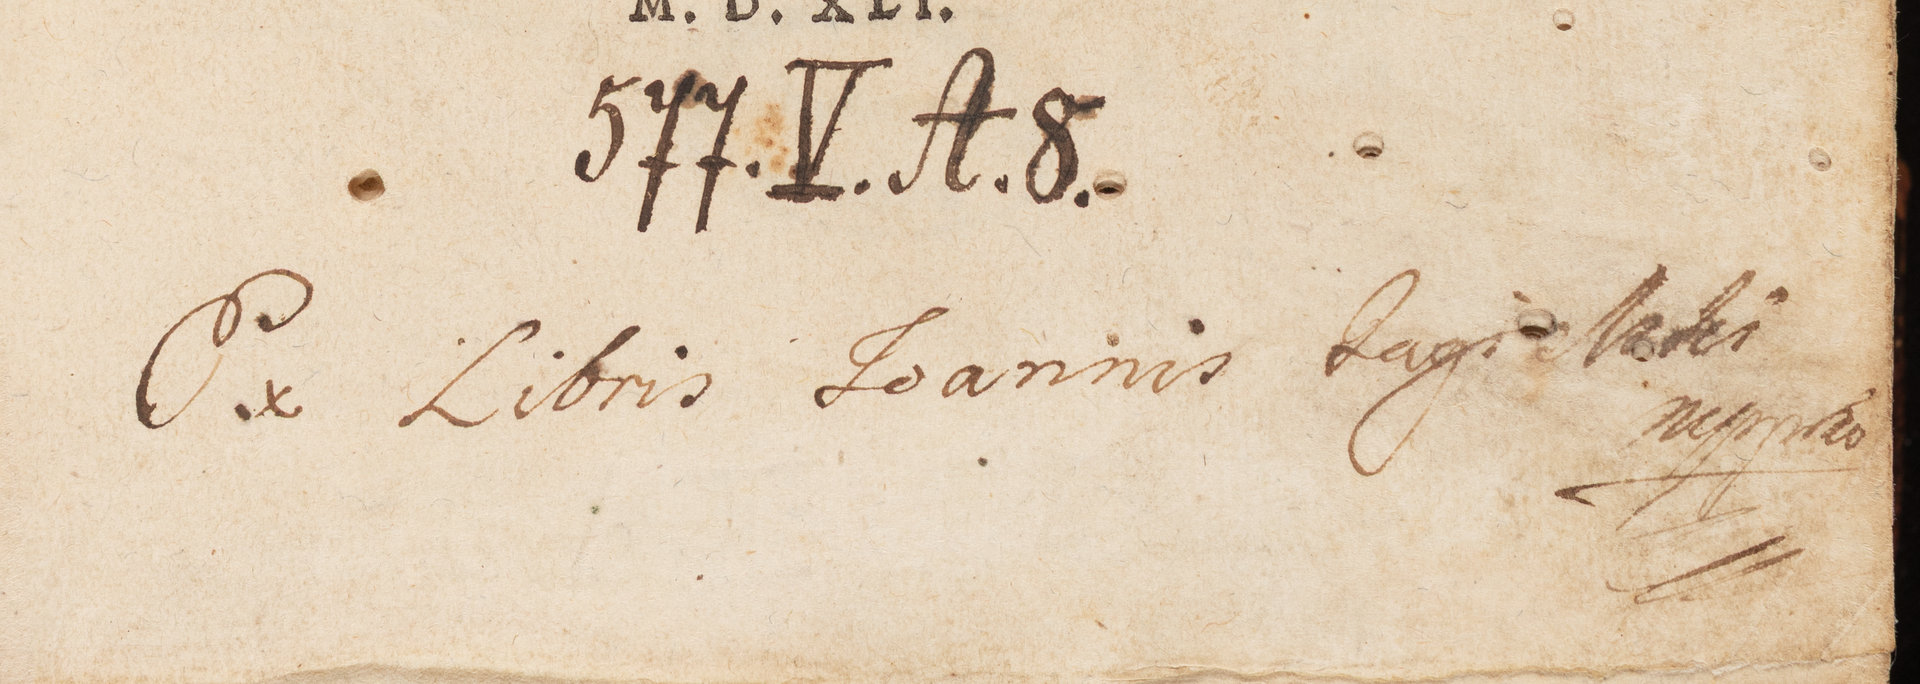 M. D. XLI.
577. V. A. 8.
Ex Libris Ioannis Jagielski